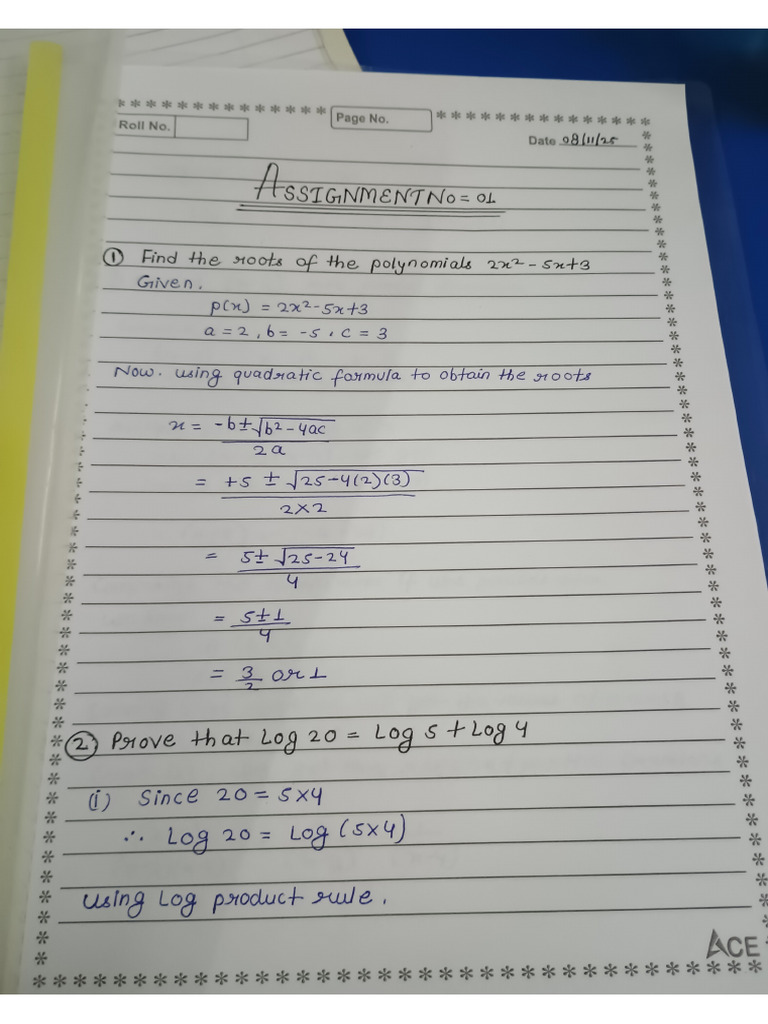 Roll No.
Page No.
Date 08/11/25
ASSIGNMENT NO = 01
① Find the roots of the polynomials 2x² - 5x+3
Given.
p(x) = 2x²-5x+3
a = 2, b = -5, c = 3
Now. using quadratic formula to obtain the roots
x = -b±√b²-4ac
2a
= +5 ± √25-4(2)(3)
2×2
= 5± √25-24
4
= 5±1
4
= 3/2 or 1
② Prove that Log 20 = Log 5 + Log 4
(i) Since 20 = 5×4
∴ Log 20 = Log (5×4)
using Log product rule.
ACE